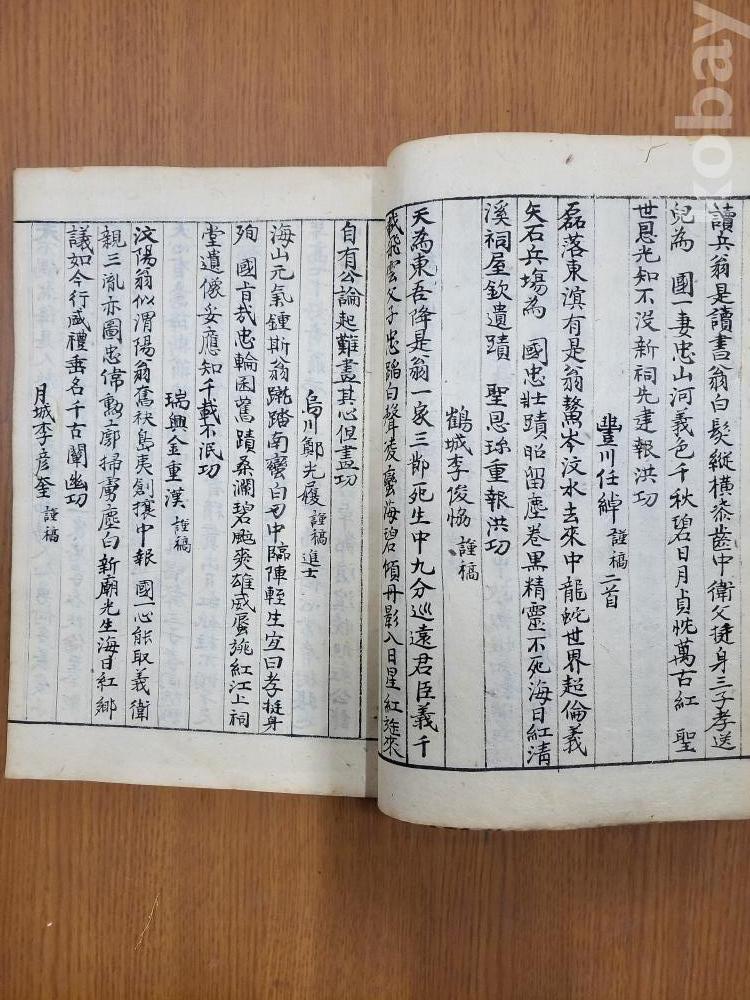 讀兵翁是讀書翁白髮縱橫忝齒中衛父挺身三子孝送
兒為 國一妻忠山河義色千秋碧日月貞忱萬古紅 聖
世恩光知不沒新祠先建報洪功
豊川任㷍 謹稿 二首
磊落東滇有是翁鰲岑汶水去來中龍蛇世界超倫義
矢石兵場為 國忠壯蹟昭留塵卷黑精靈不死海日紅清
溪祠屋欽遺蹟 聖恩珎重報洪功
鶴城李俊恊 謹稿
天為東吾降是翁一家三節死生中九分巡遠君臣義千
載飛雲父子忠蹈白聲凌蠻海碧傾丹影入日星紅旋來
自有公論起難盡其心但盡功
烏川鄭光履 謹稿 進士
海山元氣鍾斯翁蹴踏南蠻白刃中臨陣輕生宜曰孝挺身
殉 國肯哉忠輪囷舊蹟桑瀾碧颯爽雄威蜃旎紅江上祠
堂遺像妥應知千載不泯功
瑞興金重漢 謹稿
汶陽翁似渭陽翁奮袂島夷創攘中報 國一心能取義衛
親三胤亦圖忠偉勲廓掃虜塵白新廟光生海日紅鄉
議如今行盛禮垂名千古闡幽功
月城李彦奎 謹稿
kobay